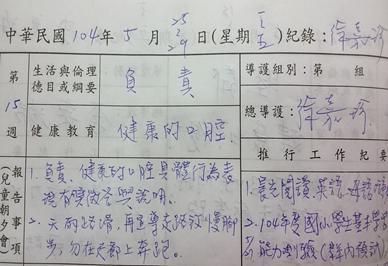 中華民國104年5月25~29日(星期一~五)紀錄:徐嘉
第15週
生活與倫理德目或綱要 負責
健康教育 健康的口腔.
導護組別:第 組
總導護:徐嘉
推行工作紀要
報告事項(兒童朝夕會)
1. 負責、健康的口腔具體行為表
現有獎徵答與說明.
2. 天雨路滑,再宣導走路放慢腳
步,勿在走廊上奔跑。
1. 晨光閱讀 英語、母語
2. 104年度國小學生基本學
力能力測驗(